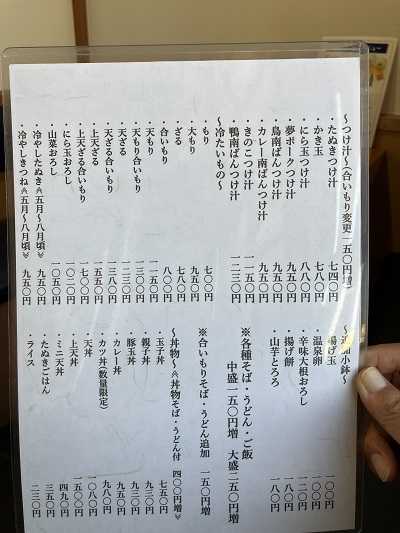 ～つけ汁～(合いもり変更一五〇円増)
・たぬきつけ汁 七四〇円
・かき玉 七八〇円
・にら玉つけ汁 八八〇円
・夢ポークつけ汁 九五〇円
・鳥南ばんつけ汁 九五〇円
・カレー南ばんつけ汁 九五〇円
・きのこつけ汁 一一五〇円
・鴨南ばんつけ汁 一二三〇円
～冷たいもの～
・もり 七〇〇円
・大もり 九五〇円
・ざる 七八〇円
・合いもり 八〇〇円
・天もり 一一五〇円
・天もり合いもり 一三〇〇円
・天ざる 一二三〇円
・天ざる合いもり 一三八〇円
・上天ざる 一五五〇円
・上天ざる合いもり 一七〇〇円
・にら玉おろし 一〇二〇円
・山菜おろし 一〇五〇円
・冷やしたぬき≪五月～八月頃≫ 九五〇円
・冷やしきつね≪五月～八月頃≫ 九五〇円
～追加小鉢～
・揚げ玉 一〇〇円
・温泉卵 一〇〇円
・辛味大根おろし 一二〇円
・揚げ餅 一八〇円
・山芋とろろ 一八〇円
※各種そば・うどん・ご飯
中盛一五〇円増 大盛二五〇円増
※合いもりそば・うどん追加 一五〇円増
～丼物～≪丼物そば・うどん付 四〇〇円増≫
・玉子丼 七五〇円
・親子丼 九三〇円
・豚玉丼 九三〇円
・カレー丼 九五〇円
・カツ丼(数量限定) 九八〇円
・天丼 一〇八〇円
・上天丼 一五〇〇円
・ミニ天丼 四九〇円
・たぬきごはん 三五〇円
・ライス 二三〇円